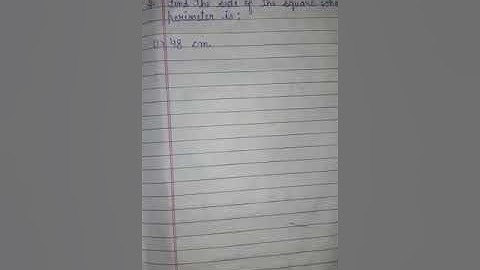 find the side of the square whose
perimeter is:
1) 48 cm